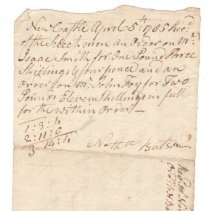 New Castle April 5th 1765 Recd
of the Select men an Order on Mr
Isaac Smith for One Pound Three
Shillings & four pence and an
Order on Mr John Foy for Two
Pound Eleven Shillings in full
for the within Order
1:3:4
2:11:0
3 14:4
Batson